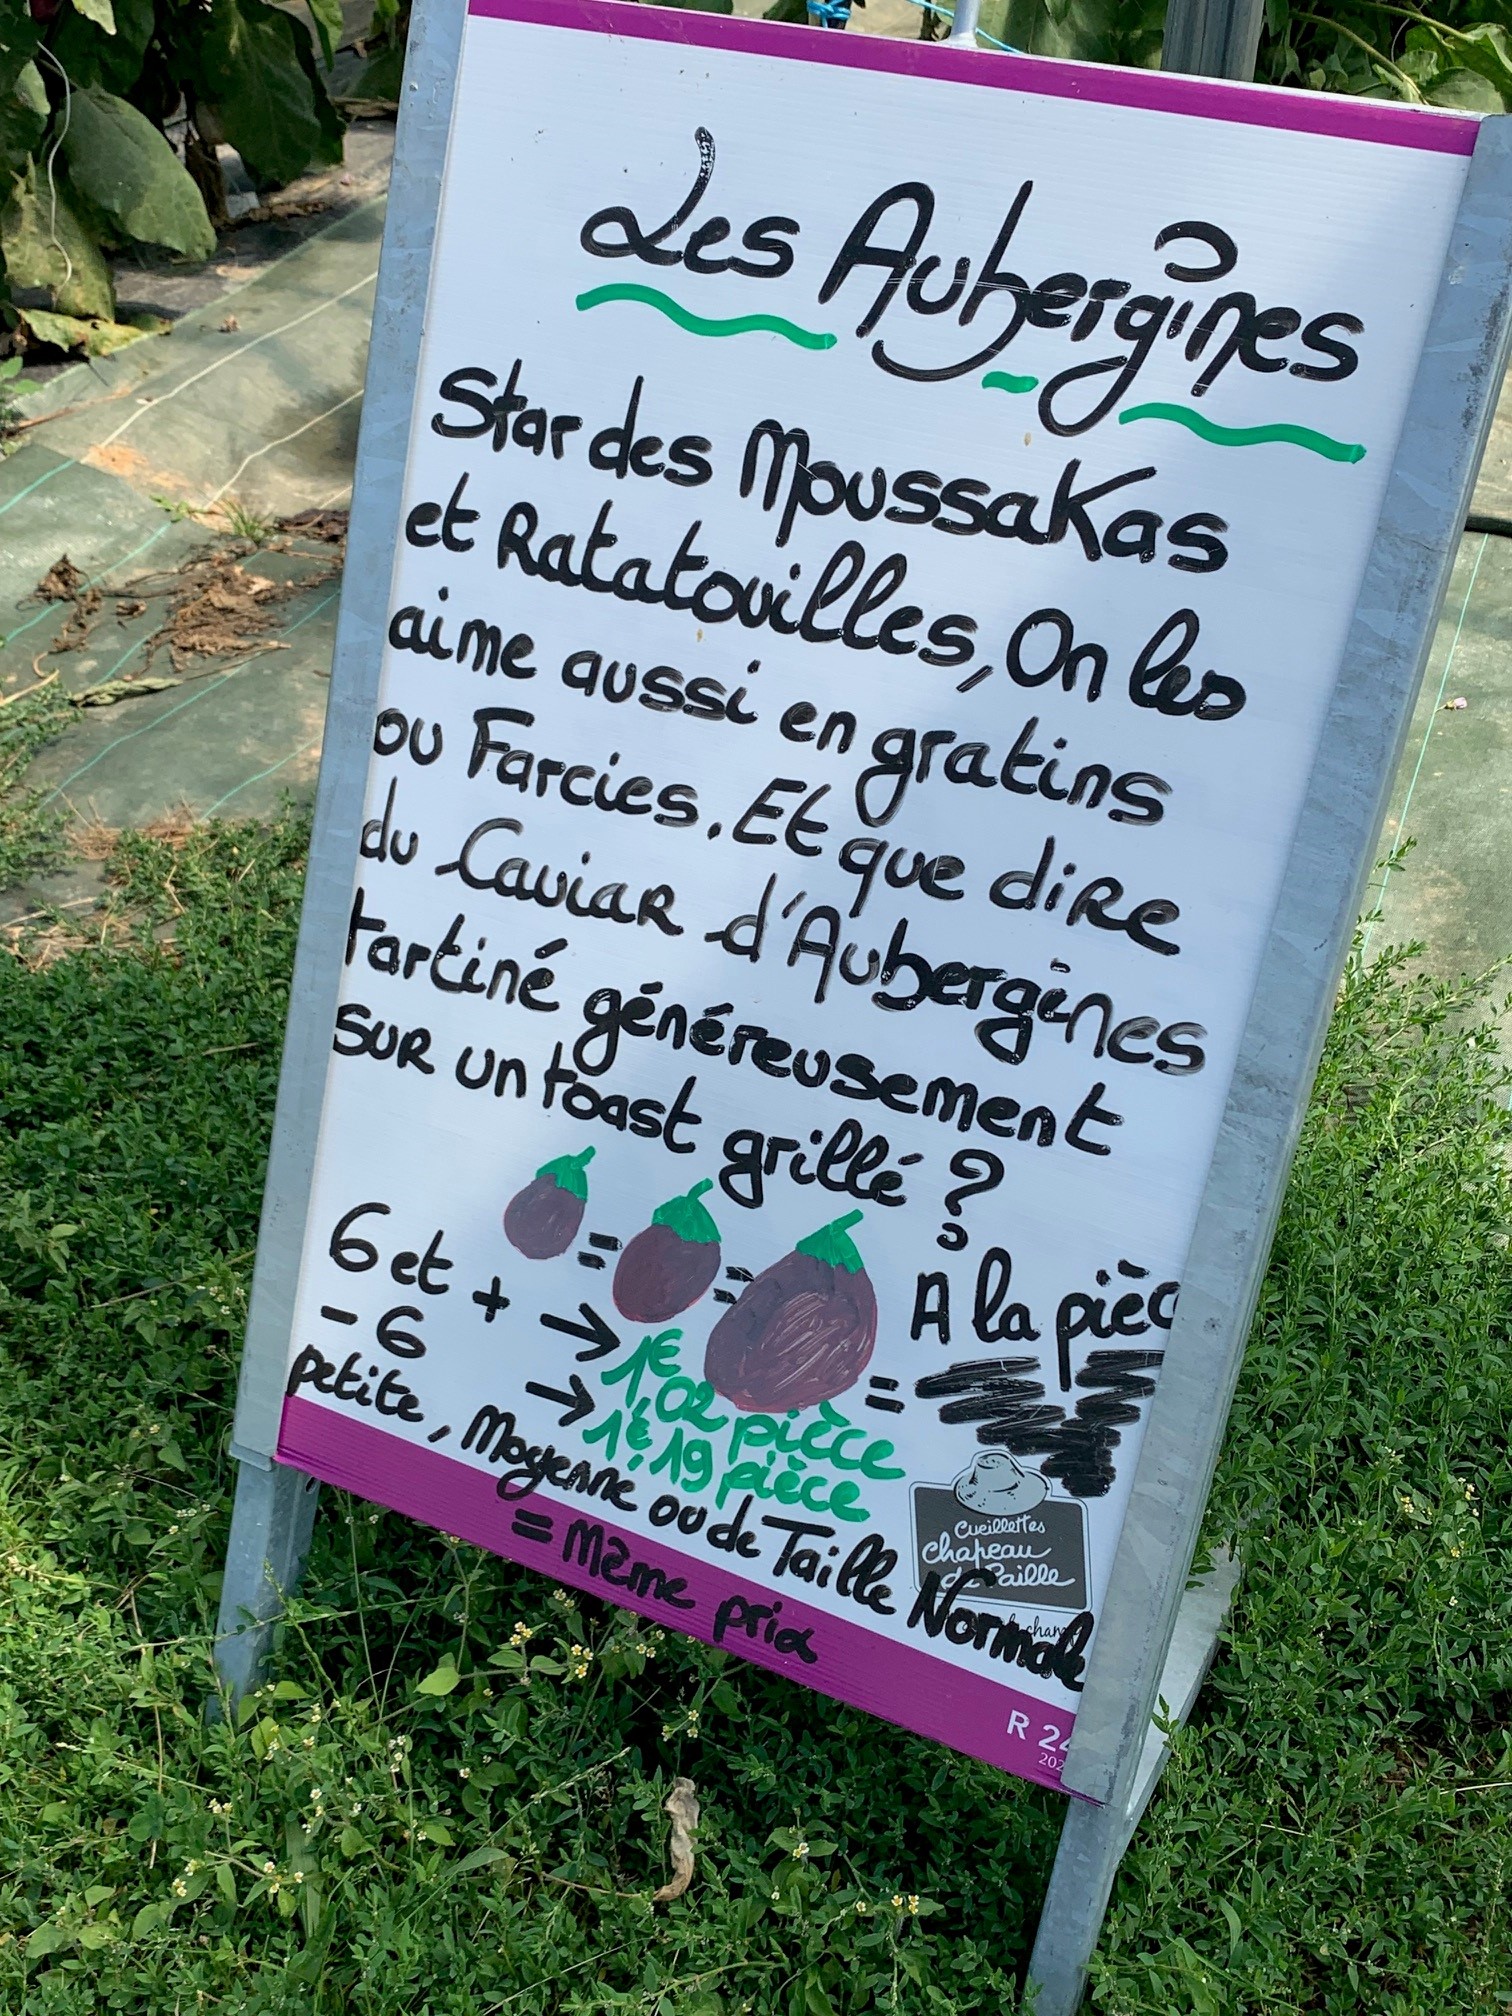 Les Aubergines
Star des Moussakas
et Ratatouilles, On les
aime aussi en gratins
ou Farcies. Et que dire
du Caviar d'Aubergines
tartiné généreusement
sur un toast grillé ?
= = = A la pièc
6 et + → 1€,02 pièce
- 6 → 1€,19 pièce
petite, Moyenne ou de Taille Normale
= Même prix
Cueillettes
chapeau
de Paille
R 24